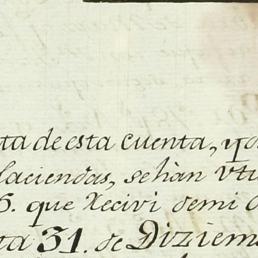 ta de esta cuenta, q̃
laciendas, se hàn vti
5. que Recivi de mi
ta 31. de Diziem